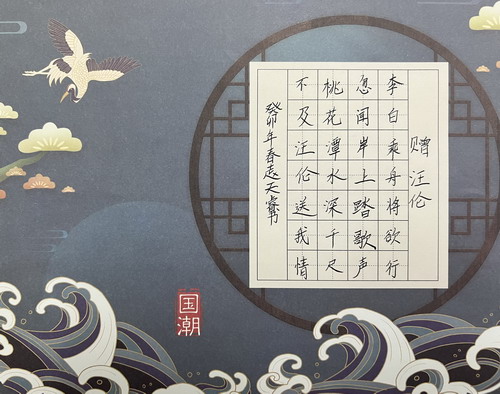 赠汪伦
李白乘舟将欲行
忽闻岸上踏歌声
桃花潭水深千尺
不及汪伦送我情
癸卯年春志天书
国潮